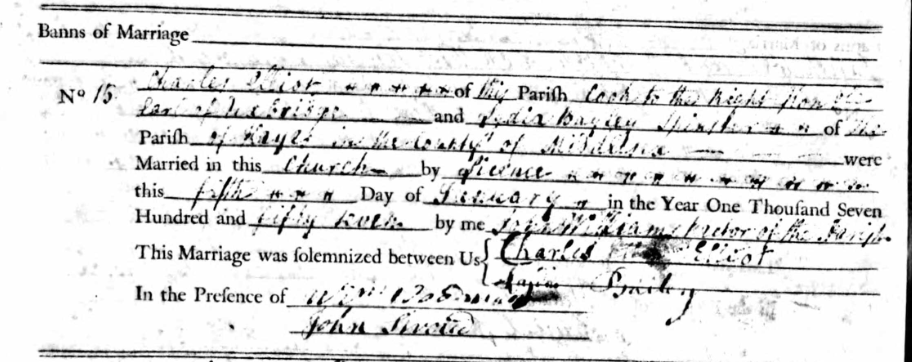 Banns of Marriage
No 15 Charles Elliot of this Parish Cook to the Right Hon
Earl of Uxbridge and Lydia Bagley Spinster of
Parish of Hayes in the County of Middlesex were
Married in this Church by Licence
this fifth Day of January in the Year One Thousand Seven
Hundred and fifty seven by me Williams Rector of the Parish
This Marriage was solemnized between Us Charles Elliot
In the Presence of Wm
John